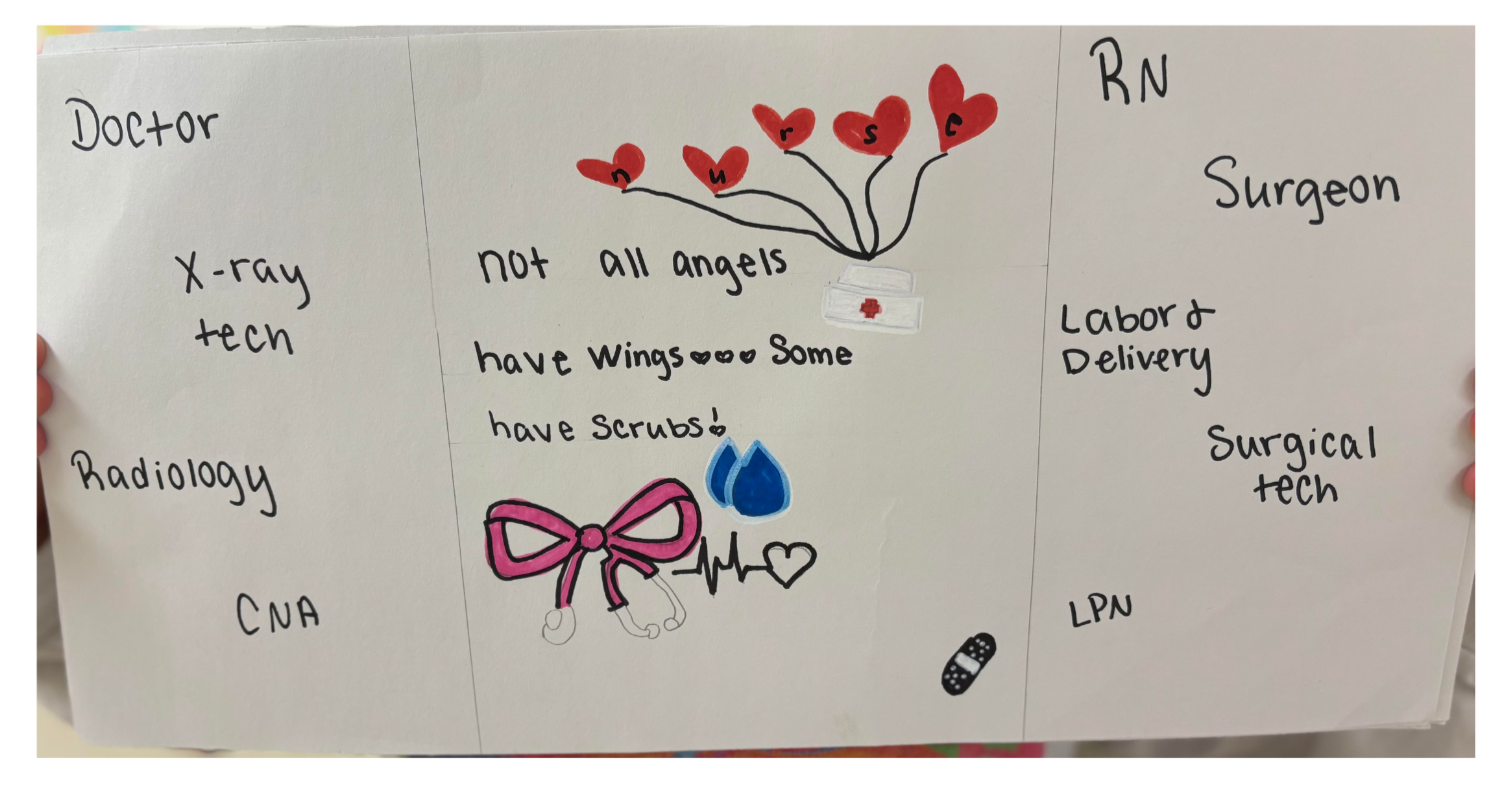 Doctor
X-ray
tech
Radiology
CNA
n u r s e
not all angels
have wings Some
have scrubs!
RN
Surgeon
Labor &
Delivery
Surgical
tech
LPN